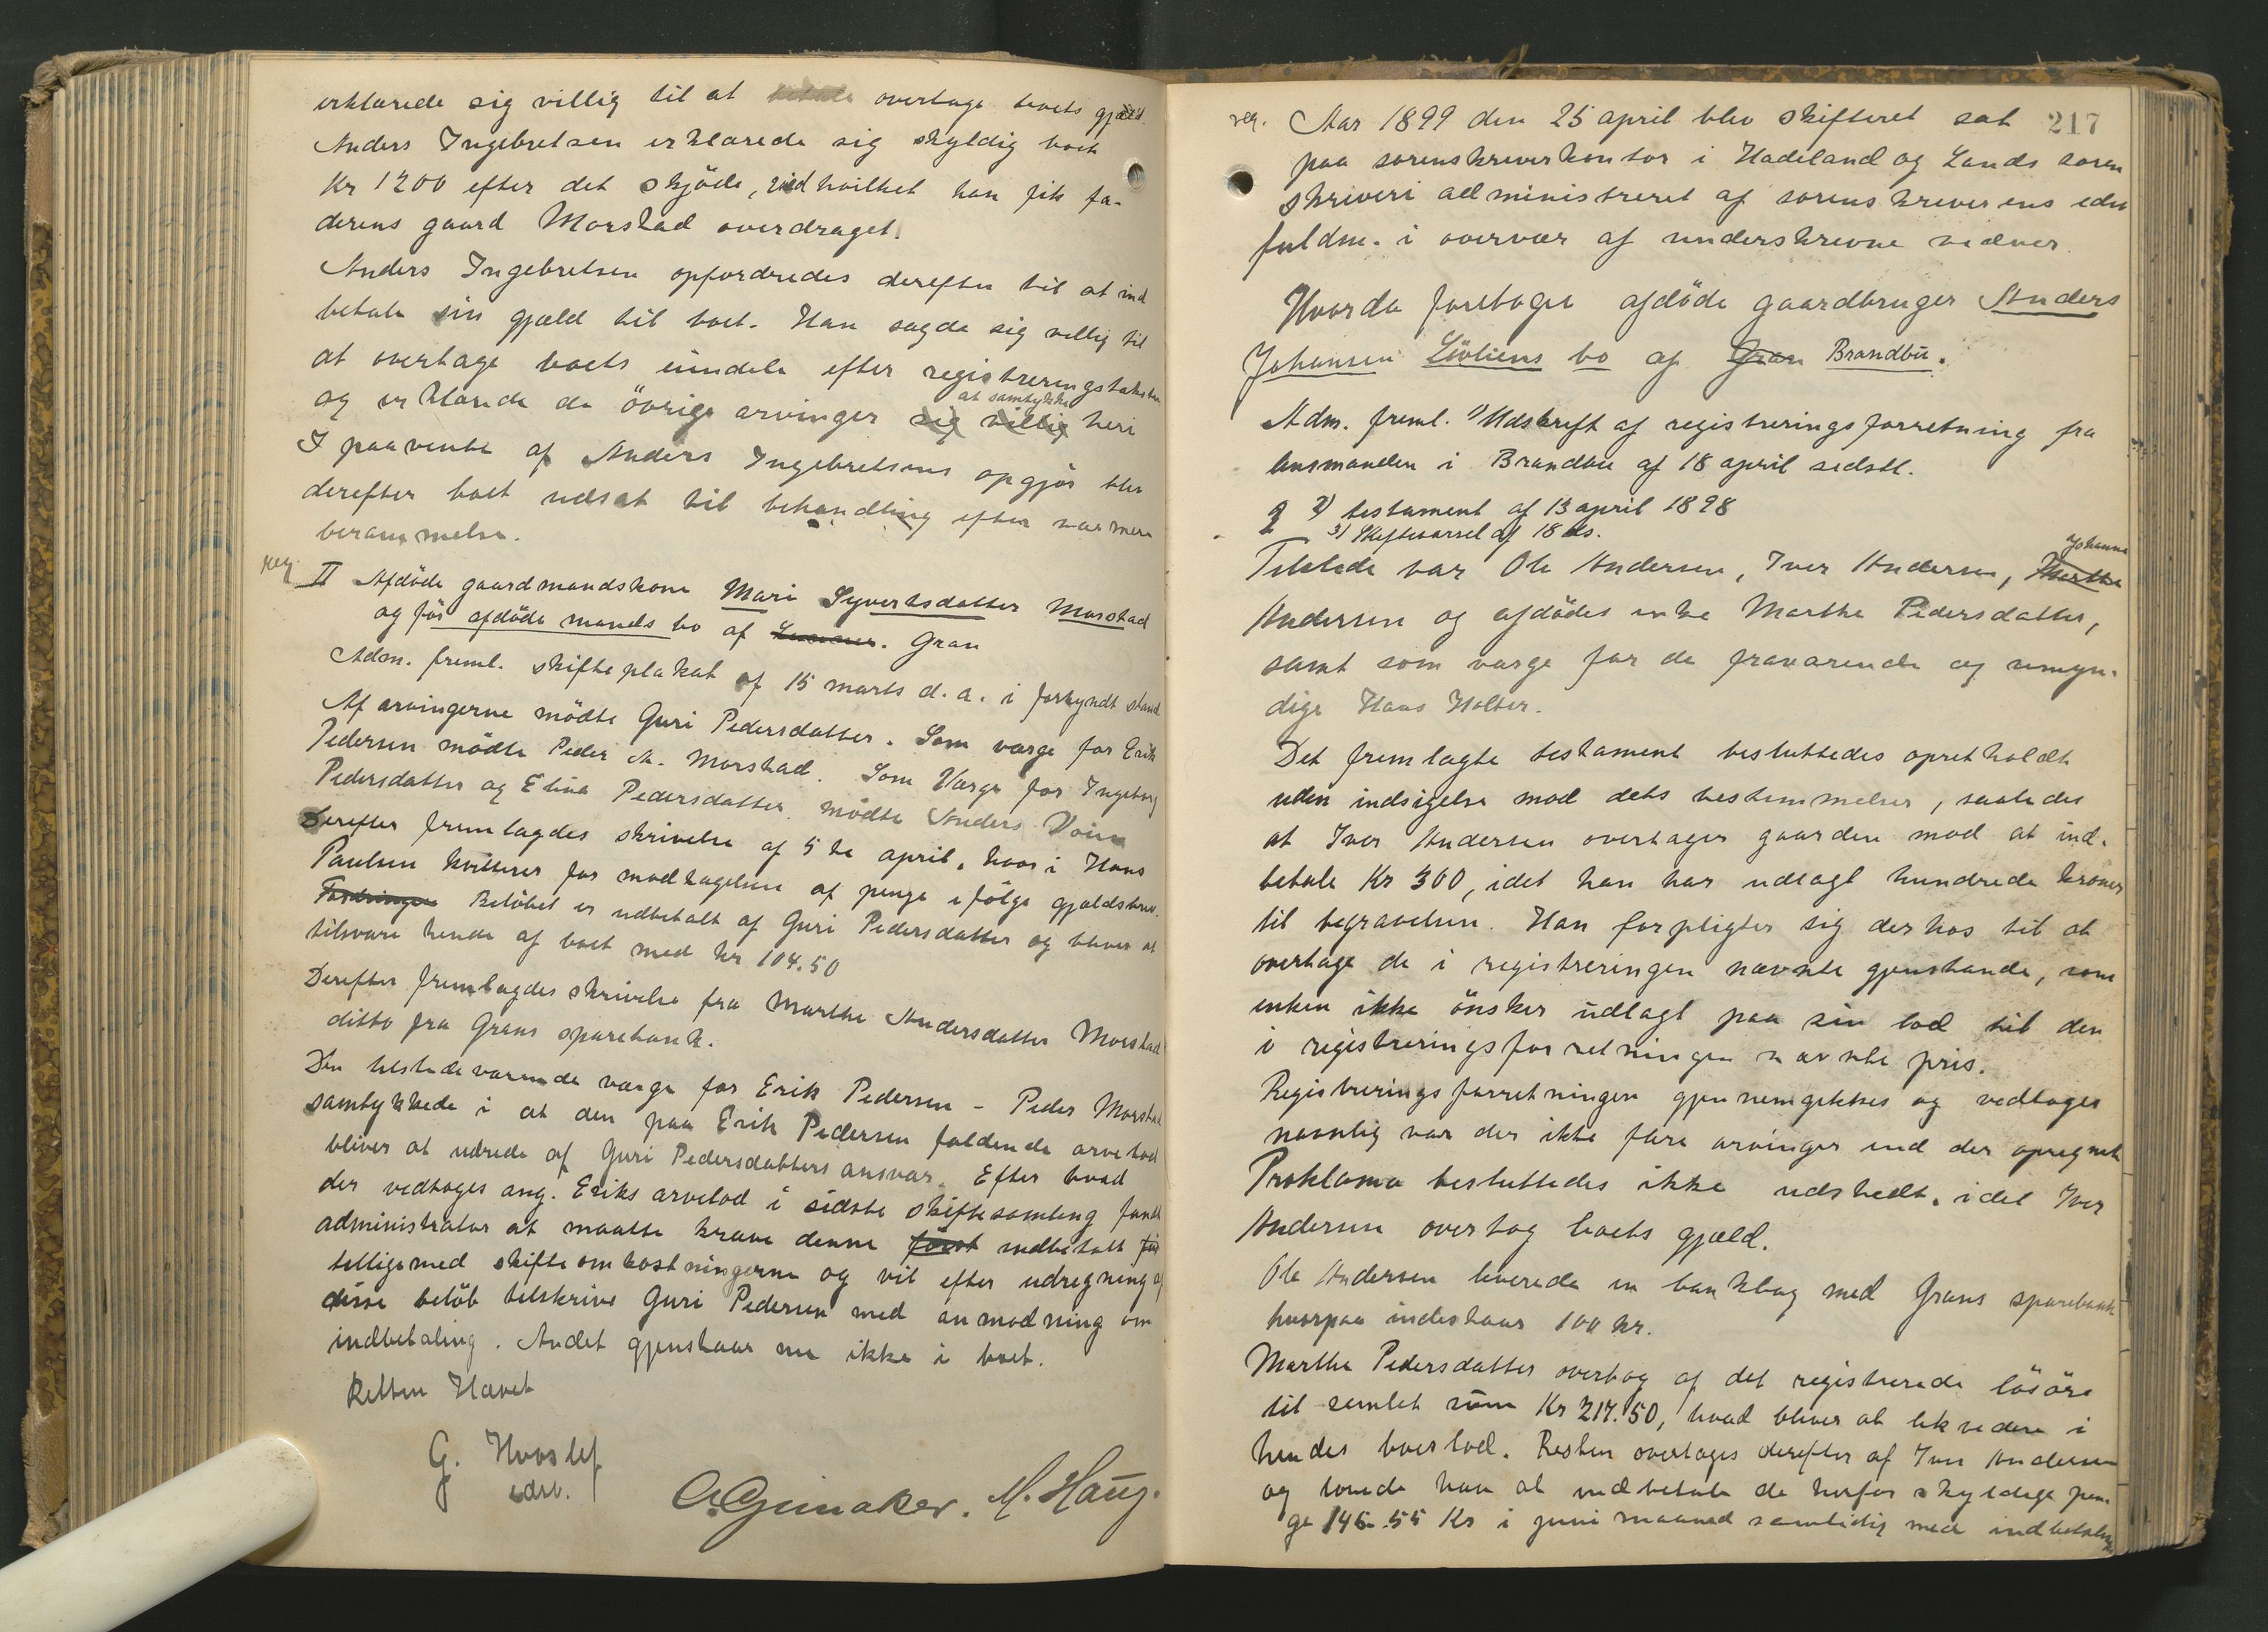 erklærede sig villig til at overtage boets gjæld.
Anders Ingebretsen erklærede sig skyldig boet
Kr 1200 efter det skjöde, ved hvilket han fik fa-
derens gaard Morstad overdraget.
Anders Ingebretsen opfordredes derefter til at ind
betale sin gjæld til boet. Han sagde sig villig til
at overtage boets eiendele efter registreringstaksten
og erklærede de övrige arvinger sig villig at samtykke heri
I paavente af Anders Ingebretsens opgjör blev
derefter boet udsat til behandling efter nærmere
berammelse.
reg. II Afdöde gaardmandskone Mari Syvertsdatter Morstad
og för afdöde mands bo af Lunner. Gran
Adm. freml. skifteplakat af 15 marts d. a. i forkyndt stand
Af arvingerne mödte Guri Pedersdatter. Som værge for Erik
Pedersen mödte Peder A. Morstad. Som Værge for Ingeborg
Pedersdatter og Elina Pedersdatter mödte Anders Voien
Derefter fremlagdes skrivelse af 5te april, hvori Hans
Paulsen kvitterer for modtagelsen af penge ifölge gjældsbrev.
Fordringen Belöbet er udbetalt af Guri Pedersdatter og bliver at
tilsvare hende af boet med kr 104.50
Derefter fremlagdes skrivelse fra Marthe Andersdatter Morstad
ditto fra Grans sparebank.
Den tilstedeværende værge for Erik Pedersen - Peder Morstad
samtykkede i at den paa Erik Pedersen faldende arvelod
bliver at udrede af Guri Pedersdatters ansvar. Efter hvad
der vedtoges ang. Eriks arvelod i sidste skiftesamling fandt
administrator at maatte kræve denne först indbetalt för
tilligemed skifteomkostningerne og vil efter udregning af
disse belöb tilskrive Guri Pedersen med anmodning om
indbetaling. Andet gjenstaar nu ikke i boet.
Retten Hævet
G. Hvoslef
edsv.
A Gjinaker. M. Haug.
217
reg. Aar 1899 den 25 april blev skifteret sat
paa sorenskriverkontor i Hadeland og Lands soren
skriveri administreret af sorenskriverens edsv
fuldm. i overvær af underskrevne vidner.
Hvorda foretoges afdöde gaardbruger Anders
Johansen Livliens bo af Gran Brandbu.
Adm. freml. 1) Udskrift af registreringsforretning fra
lensmanden i Brandbu af 18 april sidstl.
2) testament af 13 april 1898
3) Skiftevarsel af 18 ds.
Tilstede var Ole Andersen, Iver Andersen, Marthe Johanne
Andersen og afdödes enke Marthe Pedersdatter,
samt som værge for de fraværende og umyn-
dige Hans Holter.
Det fremlagte testament besluttedes opretholdt
uden indsigelse mod dets bestemmelser, saaledes
at Iver Andersen overtager gaarden mod at ind-
betale Kr 300, idet han har udlagt hundrede kroner
til begravelsen. Han forpligter sig derhos til at
overtage de i registreringen nævnte gjenstande, som
enken ikke önsker udlagt paa sin lod til den
i registreringsforretningen nævnte pris.
Registreringsforretningen gjennemgikkes og vedtoges
navnlig var der ikke flere arvinger end der opregnet
Proklama besluttedes ikke udstedt, idet Iver
Andersen overtog boets gjæld.
Ole Andersen leverede en bankbog med Grans sparebank
hvorpaa indestaar 100 kr.
Marthe Pedersdatter overtog af det registrerede lösöre
til samlet sum Kr 217.50, hvad bliver at likvidere i
hendes boeslod. Resten overtages derefter af Iver Andersen
og lovede han at indbetale de herfor skyldige pen
ge 146.55 Kr i juni maaned samtidig med indbetaling